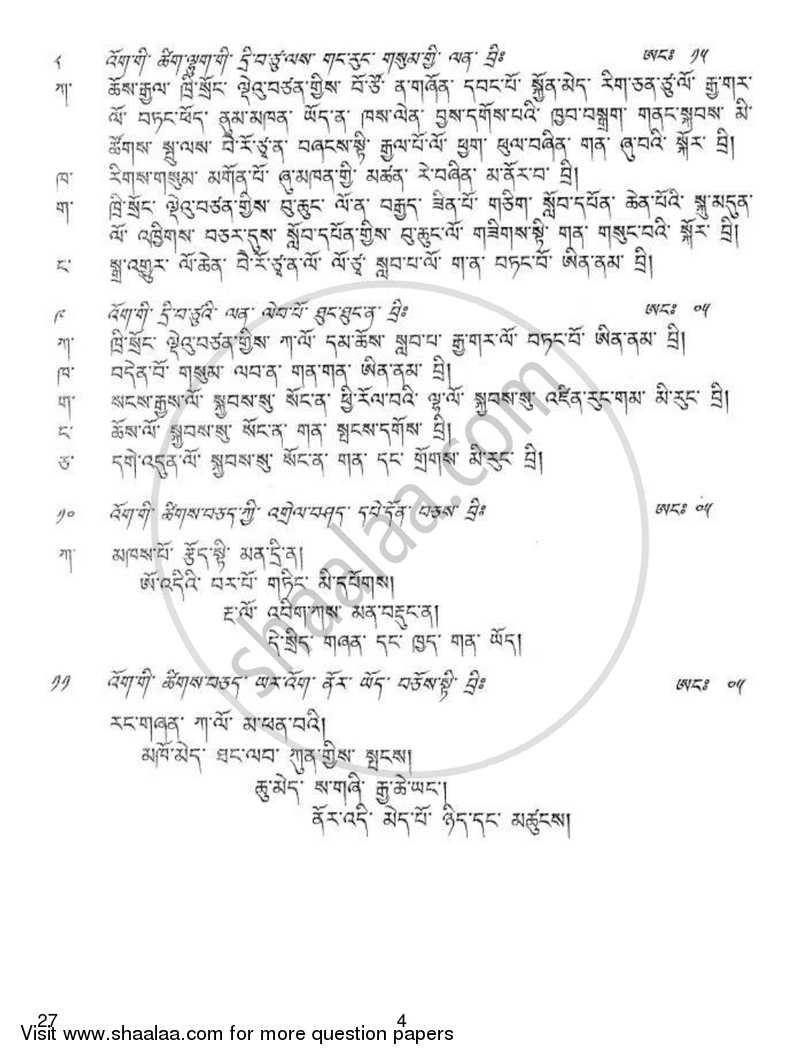 ༨ འོག་གི་ ཚིག་ལྷུག་གི་ དྲི་བ་ཙུ་ལས་ གང་རུང་ གསུམ་གྱི་ ལན་ བྲིཿ ཨངཿ ༡༥
ཀ་ ཆོས་རྒྱལ་ ཁྲི་སྲོང་ ལྡེའུ་བཙན་གྱིས་ བོ་ཙོ་ ན་གཞོན་ དབང་པོ་ སྐྱོན་མེད་ རིག་ཅན་ཙུ་ལོ་ རྒྱ་གར་
ལོ་ བཏང་ཕོད་ ནུམ་མཁན་ ཡོད་ན་ ཁས་ལེན་ བྱས་དགོས་པའི་ ཁྱབ་བསྒྲག་ གནང་སྐབས་ མི་
ཚོགས་ སྦྲུ་ལས་ བཻ་རོ་ཙཱ་ན་ བཞངས་སྟི་ རྒྱལ་པོ་ལོ་ ཕྱག་ ཕུལ་བཞིན་ གན་ ཞུ་བའི་ སྐོར་ བྲི།
ཁ་ རིགས་གསུམ་ མགོན་པོ་ ཞུ་མཁན་གྱི་ མཚན་ རེ་བཞིན་ མ་ནོར་བ་ བྲི།
ག་ ཁྲི་སྲོང་ ལྡེའུ་བཙན་གྱིས་ བུ་ཆུང་ ལོ་ན་ བརྒྱད་ ཟིན་པོ་ གཅིག་ སློབ་དཔོན་ ཆེན་པོའི་ སྐུ་མདུན་
ལོ་ འཁྲིགས་ བཅར་དུས་ སློབ་དཔོན་གྱིས་ བུ་ཆུང་ལོ་ གཟིགས་སྟི་ གན་ གསུང་བའི་ སྐོར་ བྲི།
ང་ སྒྲ་འགྱུར་ ལོ་ཆེན་ བཻ་རོ་ཙཱ་ན་ལོ་ ལོ་ཙཱ་ སླབ་པ་ལོ་ ག་ན་ བཏང་བོ་ ཨིན་ནམ་ བྲི།
༩ འོག་གི་ དྲི་བ་ཙུའི་ ལན་ ལེབ་པོ་ ཐུང་ཐུང་ན་ བྲིཿ ཨངཿ ༠༥
ཀ་ ཁྲི་སྲོང་ ལྡེའུ་བཙན་གྱིས་ ཀ་ལོ་ དམ་ཆོས་ སླབ་པ་ རྒྱ་གར་ལོ་ བཏང་བོ་ ཨིན་ནམ་ བྲི།
ཁ་ བདེན་བོ་ གསུམ་ ལབ་ན་ གན་གན་ ཨིན་ནམ་ བྲི།
ག་ སངས་རྒྱས་ལོ་ སྐྱབས་སུ་ སོང་ན་ ཕྱི་རོལ་བའི་ ལྷ་ལོ་ སྐྱབས་སུ་ འཛིན་རུང་གམ་ མི་རུང་ བྲི།
ང་ ཆོས་ལོ་ སྐྱབས་སུ་ སོང་ན་ གན་ སྤངས་དགོས་ བྲི།
ཅ་ དགེ་འདུན་ལོ་ སྐྱབས་སུ་ སོང་ན་ གན་ དང་ གྲོགས་ མི་རུང་ བྲི།
༡༠ འོག་གི་ ཚིགས་བཅད་ཀྱི་ འགྲེལ་བཤད་ དཔེ་དོན་ བཅས་ བྲིཿ ཨངཿ ༠༥
ཀ་ མཁས་པོ་ རྩོད་སྟི་ མན་དྲི་ན།
ཨོ་འདིའི་ བར་པོ་ གཏིང་ མི་དཔོགས།
རྔ་ལོ་ འབིག་ཀས་ མན་བརྡུང་ན།
དེ་སྲིད་ གཞན་ དང་ ཁྱད་ གན་ ཡོད།
༡༡ འོག་གི་ ཚིགས་བཅད་ ཡར་འོག་ ནོར་ ཡོད་ བཅོས་སྟི་ བྲིཿ ཨངཿ ༠༥
རང་གཞན་ ཀ་ལོ་ མ་ཕན་བའི།
མཁོ་མེད་ ཐང་ལབ་ ཀུན་གྱིས་ སྤངས།
ཆུ་མེད་ ས་གཞི་ རྒྱ་ཆེ་ཡང་།
ནོར་འདི་ མེད་པོ་ ཉིད་དང་ མཚུངས།
shaalaa.com
27 4
Visit www.shaalaa.com for more question papers